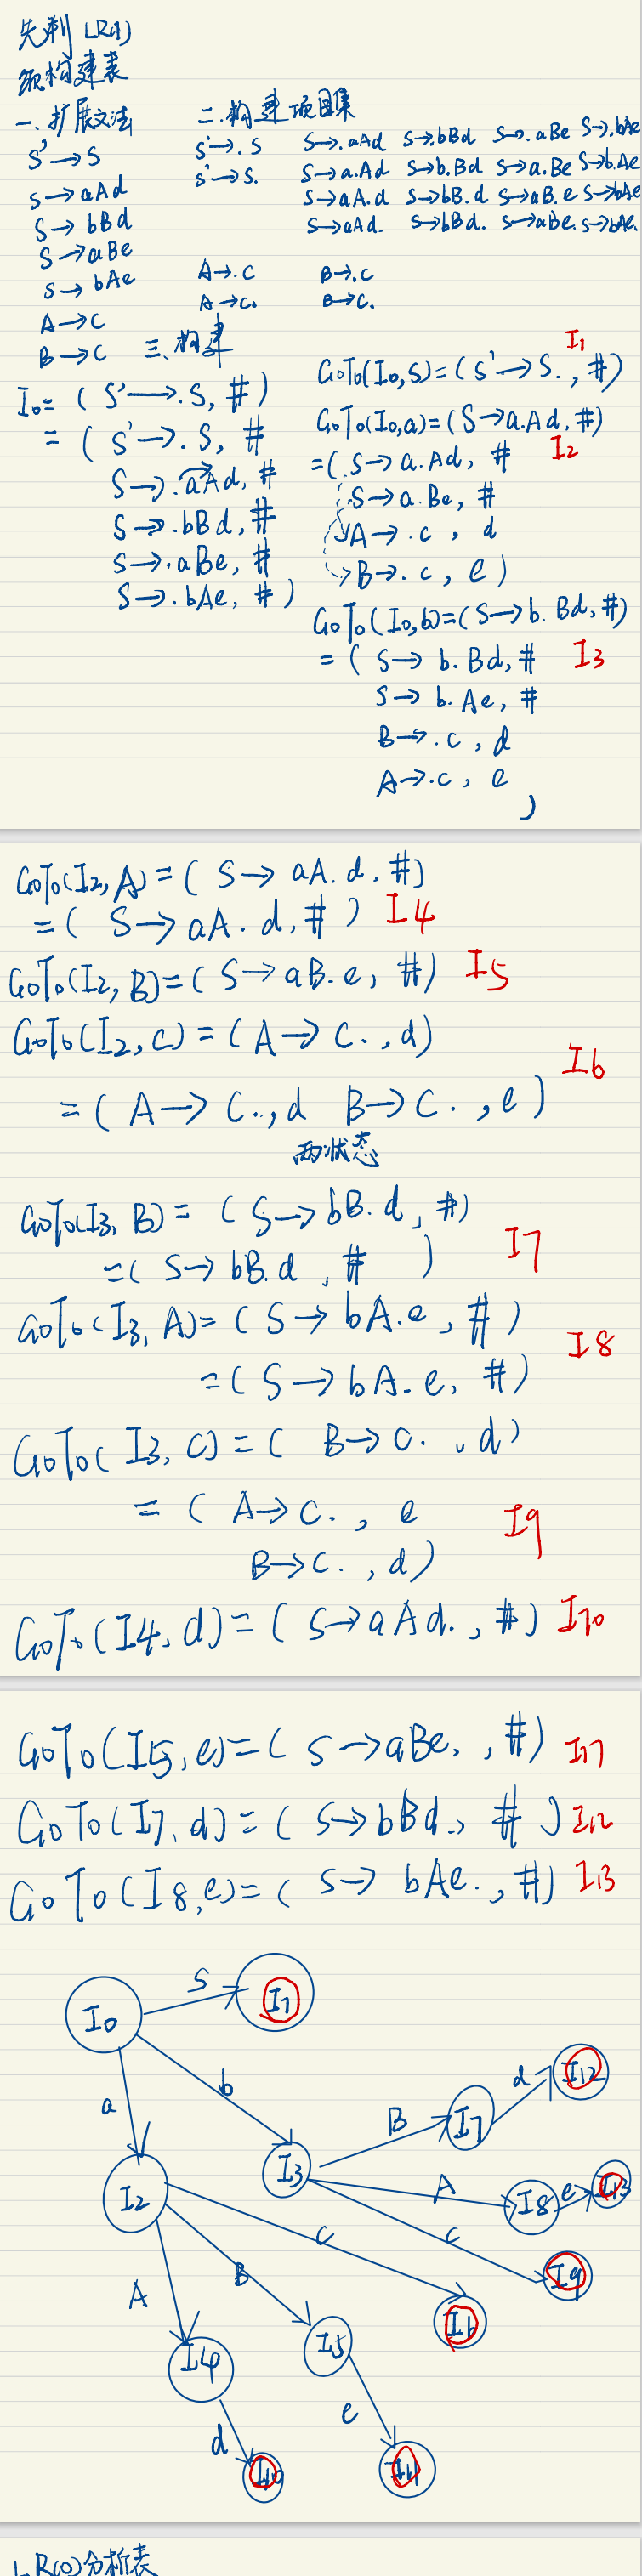 先判LR(1)
须构建表
一、扩展文法
S'→S
S→aAd
S→bBd
S→aBe
S→bAe
A→C
B→C
二.构建项目集
S'→.S S→.aAd S→.bBd S→.aBe S→.bAe
S'→S. S→a.Ad S→b.Bd S→a.Be S→b.Ae
S→aA.d S→bB.d S→aB.e S→bAe
S→aAd. S→bBd. S→aBe. S→bAe.
A→.C B→.C
A→C. B→C.
三、构建
I0=(S'→.S,#)
=(S'→.S,#
S→.aAd,#
S→.bBd,#
S→.aBe,#
S→.bAe,#)
I1
GoTo(I0,S)=(S'→S.,#)
GoTo(I0,a)=(S→a.Ad,#)
=(S→a.Ad,# I2
S→a.Be,#
A→.c,d
B→.c,e)
GoTo(I0,b)=(S→b.Bd,#)
=(S→b.Bd,# I3
S→b.Ae,#
B→.c,d
A→.c,e
)
GoTo(I2,A)=(S→aA.d,#)
=(S→aA.d,#) I4
GoTo(I2,B)=(S→aB.e,#) I5
GoTo(I2,c)=(A→C.,d)
I6
=(A→C.,d B→C.,e)
两状态
GoTo(I3,B)=(S→bB.d,#)
=(S→bB.d,#) I7
GoTo(I3,A)=(S→bA.e,#)
I8
=(S→bA.e,#)
GoTo(I3,C)=(B→C.,d)
=(A→C.,e
I9
B→C.,d)
GoTo(I4,d)=(S→aAd.,#) I10
GoTo(I5,e)=(S→aBe.,#) I11
GoTo(I7,d)=(S→bBd.,#) I12
GoTo(I8,e)=(S→bAe.,#) I13
I0
S
I1
a
b
I2
I3
B
I7
d
I12
A
I8
e
I13
C
I9
C
I6
A
B
I4
I5
d
e
I10
I11
LR(0)分析表